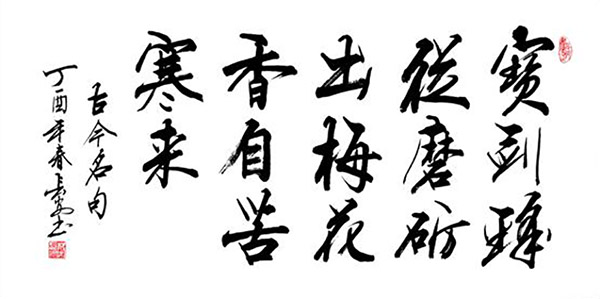 寶剑鋒
從磨砺
出梅花
香自苦
寒来
古今名句
丁酉年春